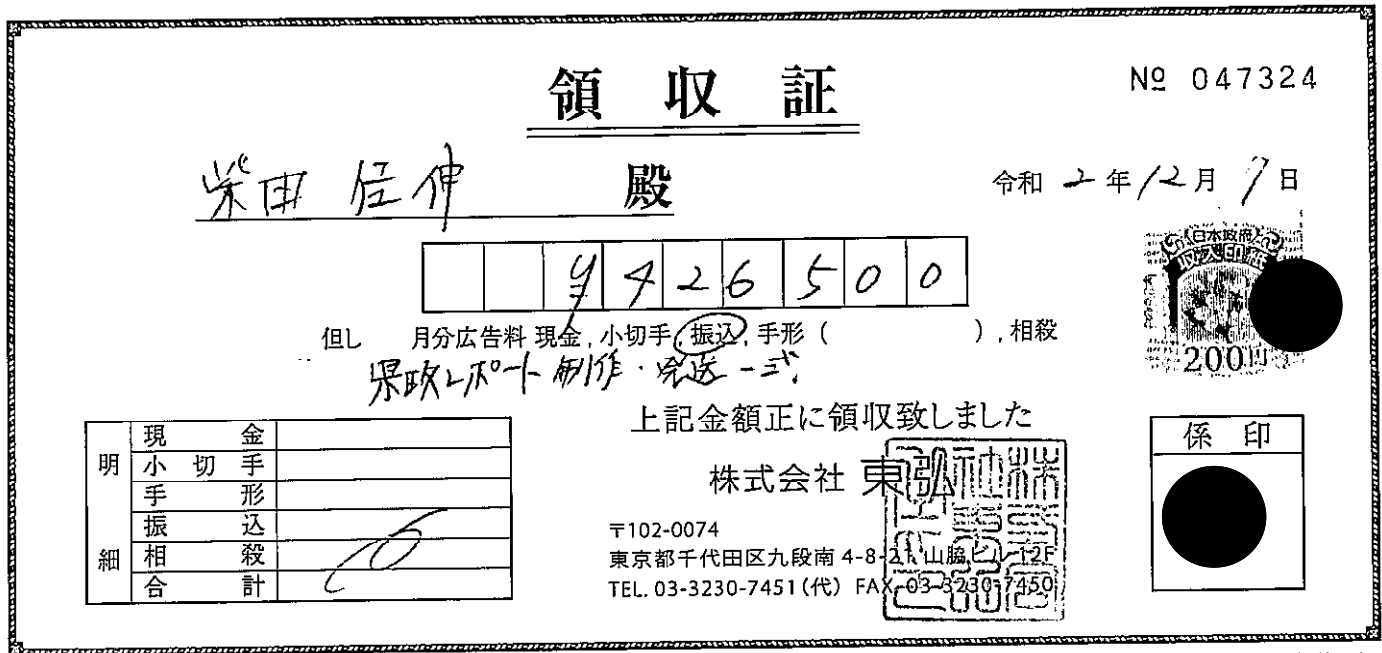 領収証
№ 047324
柴田 信伸 殿
令和 2 年 12 月 9 日
¥426500
但し 月分広告料 現金, 小切手, 振込, 手形 ( ), 相殺
県政レポート制作・発送一式
日本政府
収入印紙
200円
上記金額正に領収致しました
株式会社 東弘
〒102-0074
東京都千代田区九段南 4-8-21 山脇ビル 12F
TEL. 03-3230-7451(代) FAX. 03-3230-7450
明細
現金
小切手
手形
振込
相殺
合計
係印